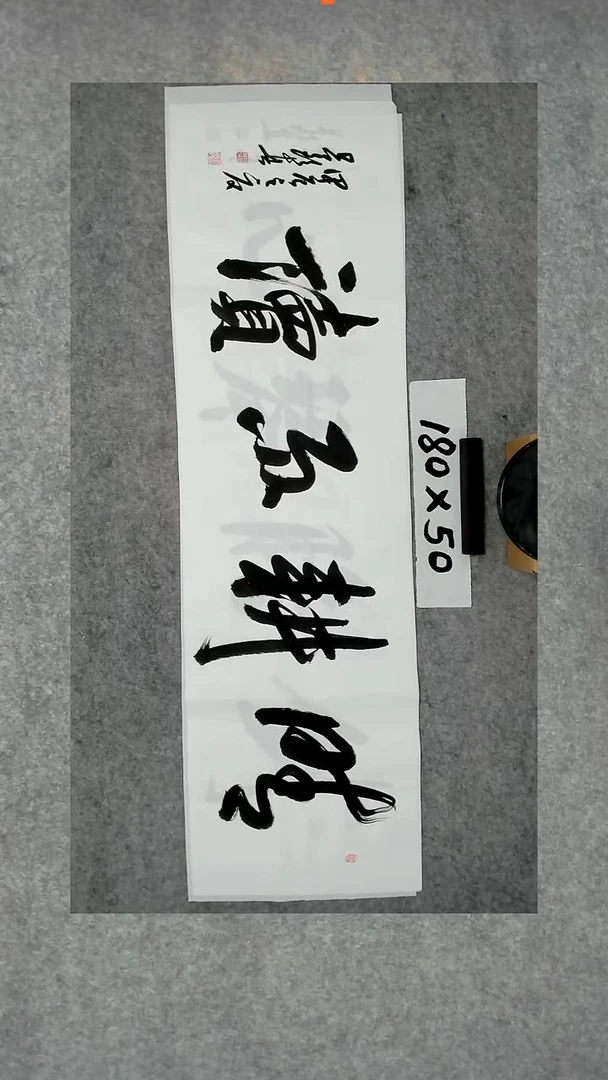 晴耕雨讀
180×50